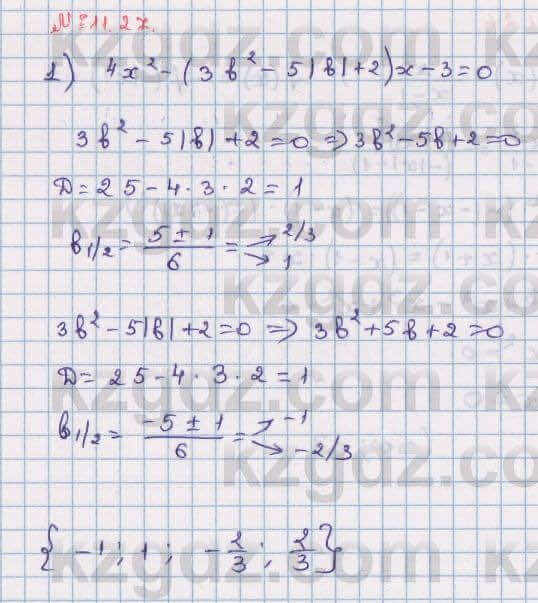 № 11.27.
1) 4x² - (3b² - 5|b| + 2)x - 3 = 0
3b² - 5|b| + 2 = 0 ⇒ 3b² - 5b + 2 = 0
D = 25 - 4 · 3 · 2 = 1
b₁/₂ = (5 ± 1)/6 = → 2/3 → 1
3b² - 5|b| + 2 = 0 ⇒ 3b² + 5b + 2 = 0
D = 25 - 4 · 3 · 2 = 1
b₁/₂ = (-5 ± 1)/6 = → -1 → -2/3
{ -1; 1; -2/3; 2/3 }
kzgdz.com